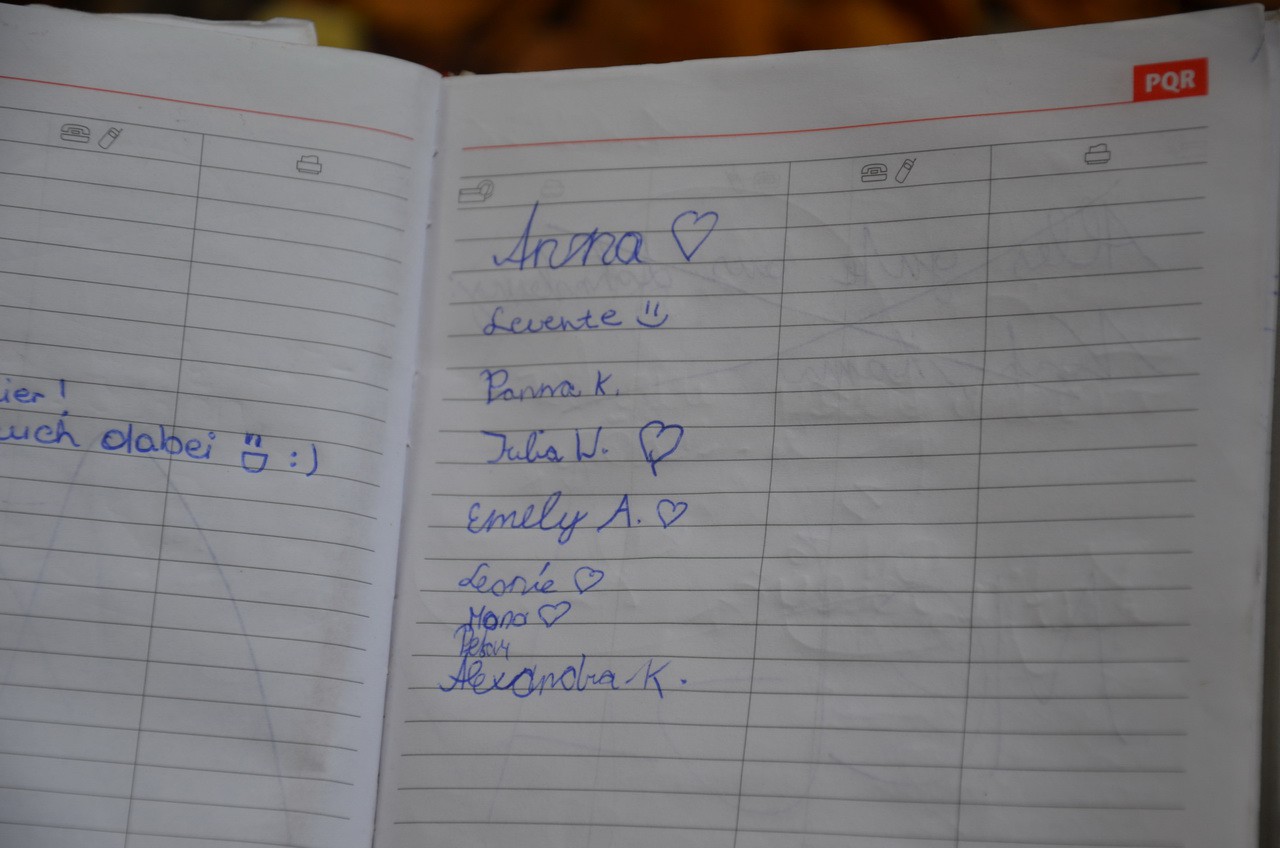 ier!
uch dabei :)
PQR
Anna ♡
Levente
Panna K.
Julia W. ♡
Emely A. ♡
Leonie ♡
Mona ♡
Alexandra K.